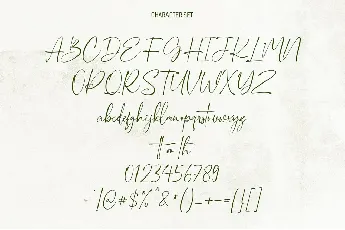 CHARACTER SET
ABCDEFGHIJKLMN
OPQRSTUVWXYZ
abcdefghijklmnopqrstuvwxyz
tt th
0123456789
!@#$%^&*()_+-=[][]